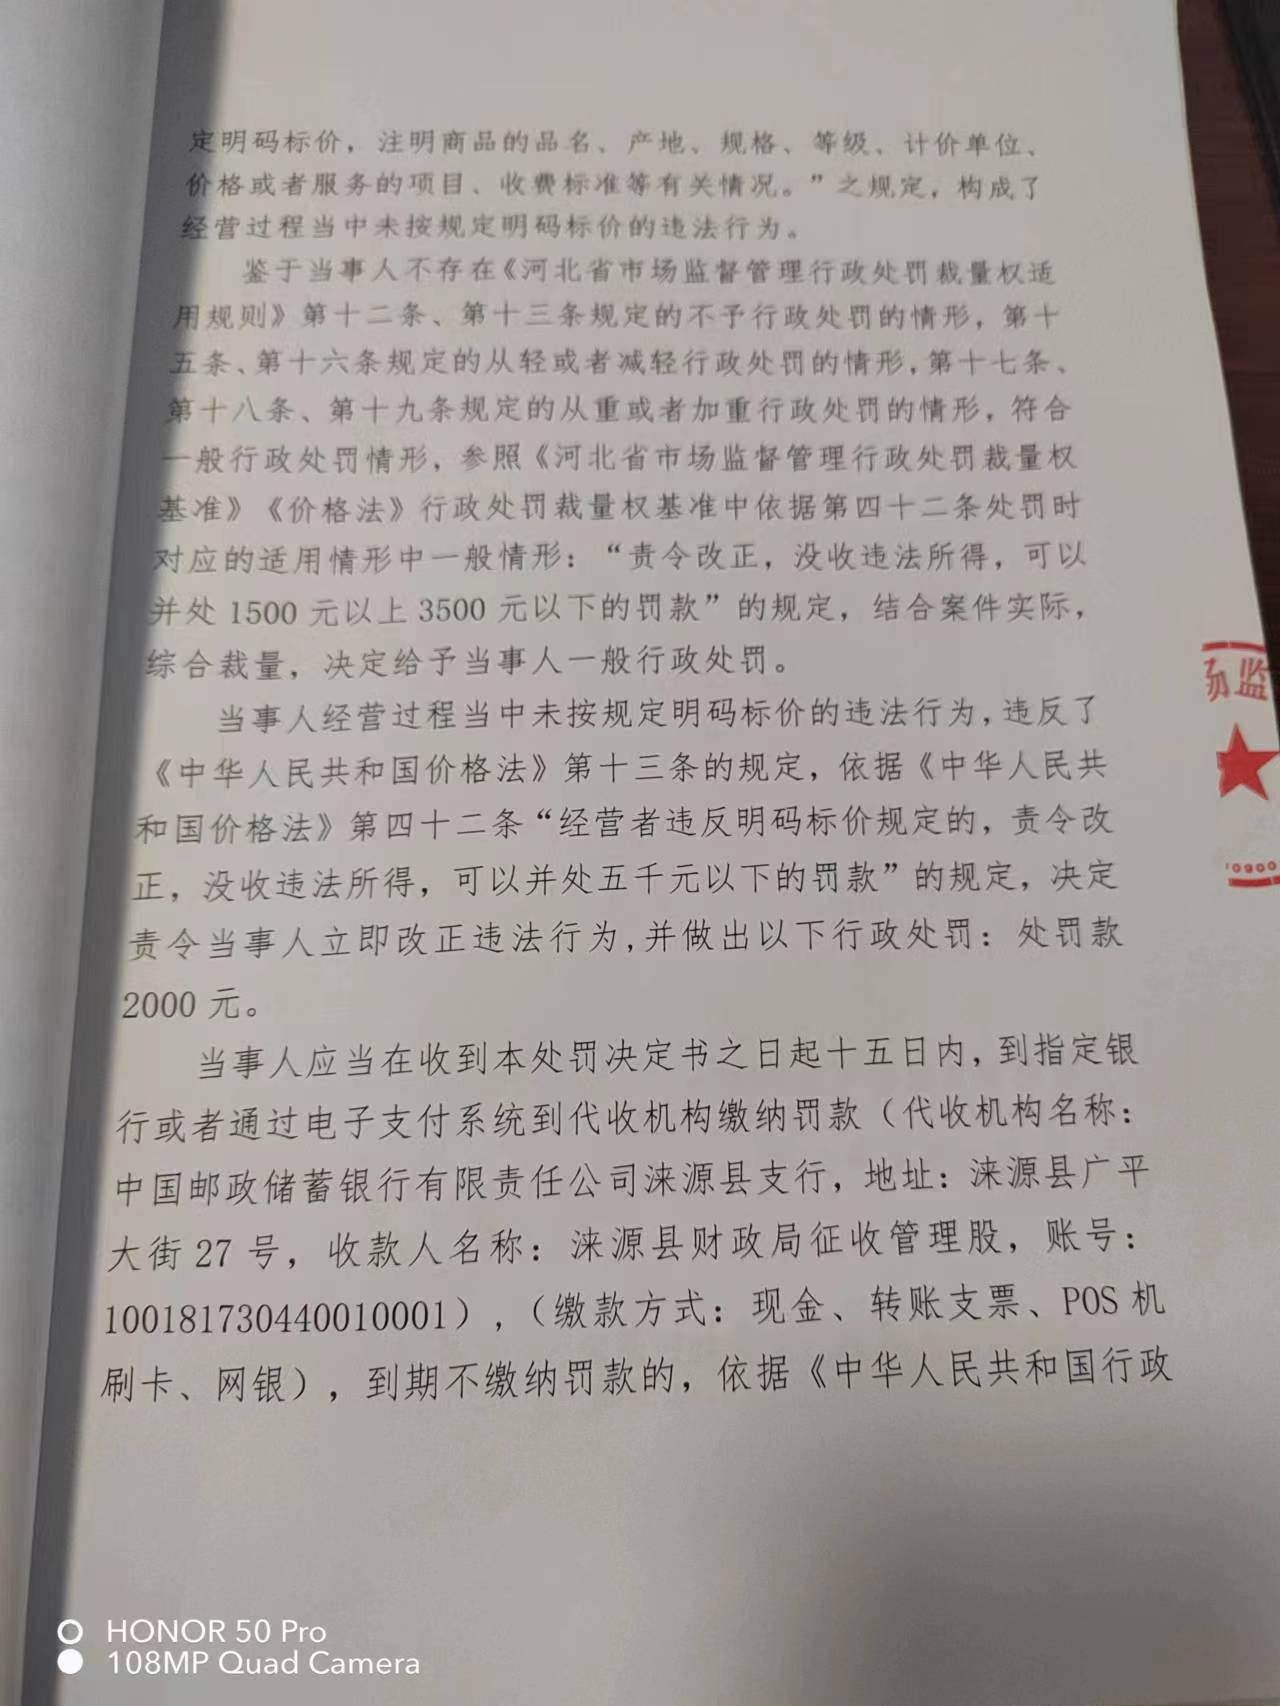 定明码标价，注明商品的品名、产地、规格、等级、计价单位、
价格或者服务的项目、收费标准等有关情况。”之规定，构成了
经营过程当中未按规定明码标价的违法行为。
鉴于当事人不存在《河北省市场监督管理行政处罚裁量权适
用规则》第十二条、第十三条规定的不予行政处罚的情形，第十
五条、第十六条规定的从轻或者减轻行政处罚的情形，第十七条、
第十八条、第十九条规定的从重或者加重行政处罚的情形，符合
一般行政处罚情形，参照《河北省市场监督管理行政处罚裁量权
基准》《价格法》行政处罚裁量权基准中依据第四十二条处罚时
对应的适用情形中一般情形：“责令改正，没收违法所得，可以
并处 1500 元以上 3500 元以下的罚款”的规定，结合案件实际，
综合裁量，决定给予当事人一般行政处罚。
当事人经营过程当中未按规定明码标价的违法行为，违反了
《中华人民共和国价格法》第十三条的规定，依据《中华人民共
和国价格法》第四十二条“经营者违反明码标价规定的，责令改
正，没收违法所得，可以并处五千元以下的罚款”的规定，决定
责令当事人立即改正违法行为，并做出以下行政处罚：处罚款
2000 元。
当事人应当在收到本处罚决定书之日起十五日内，到指定银
行或者通过电子支付系统到代收机构缴纳罚款（代收机构名称：
中国邮政储蓄银行有限责任公司涞源县支行，地址：涞源县广平
大街 27 号，收款人名称：涞源县财政局征收管理股，账号：
100181730440010001），（缴款方式：现金、转账支票、POS 机
刷卡、网银），到期不缴纳罚款的，依据《中华人民共和国行政
场监
HONOR 50 Pro
108MP Quad Camera